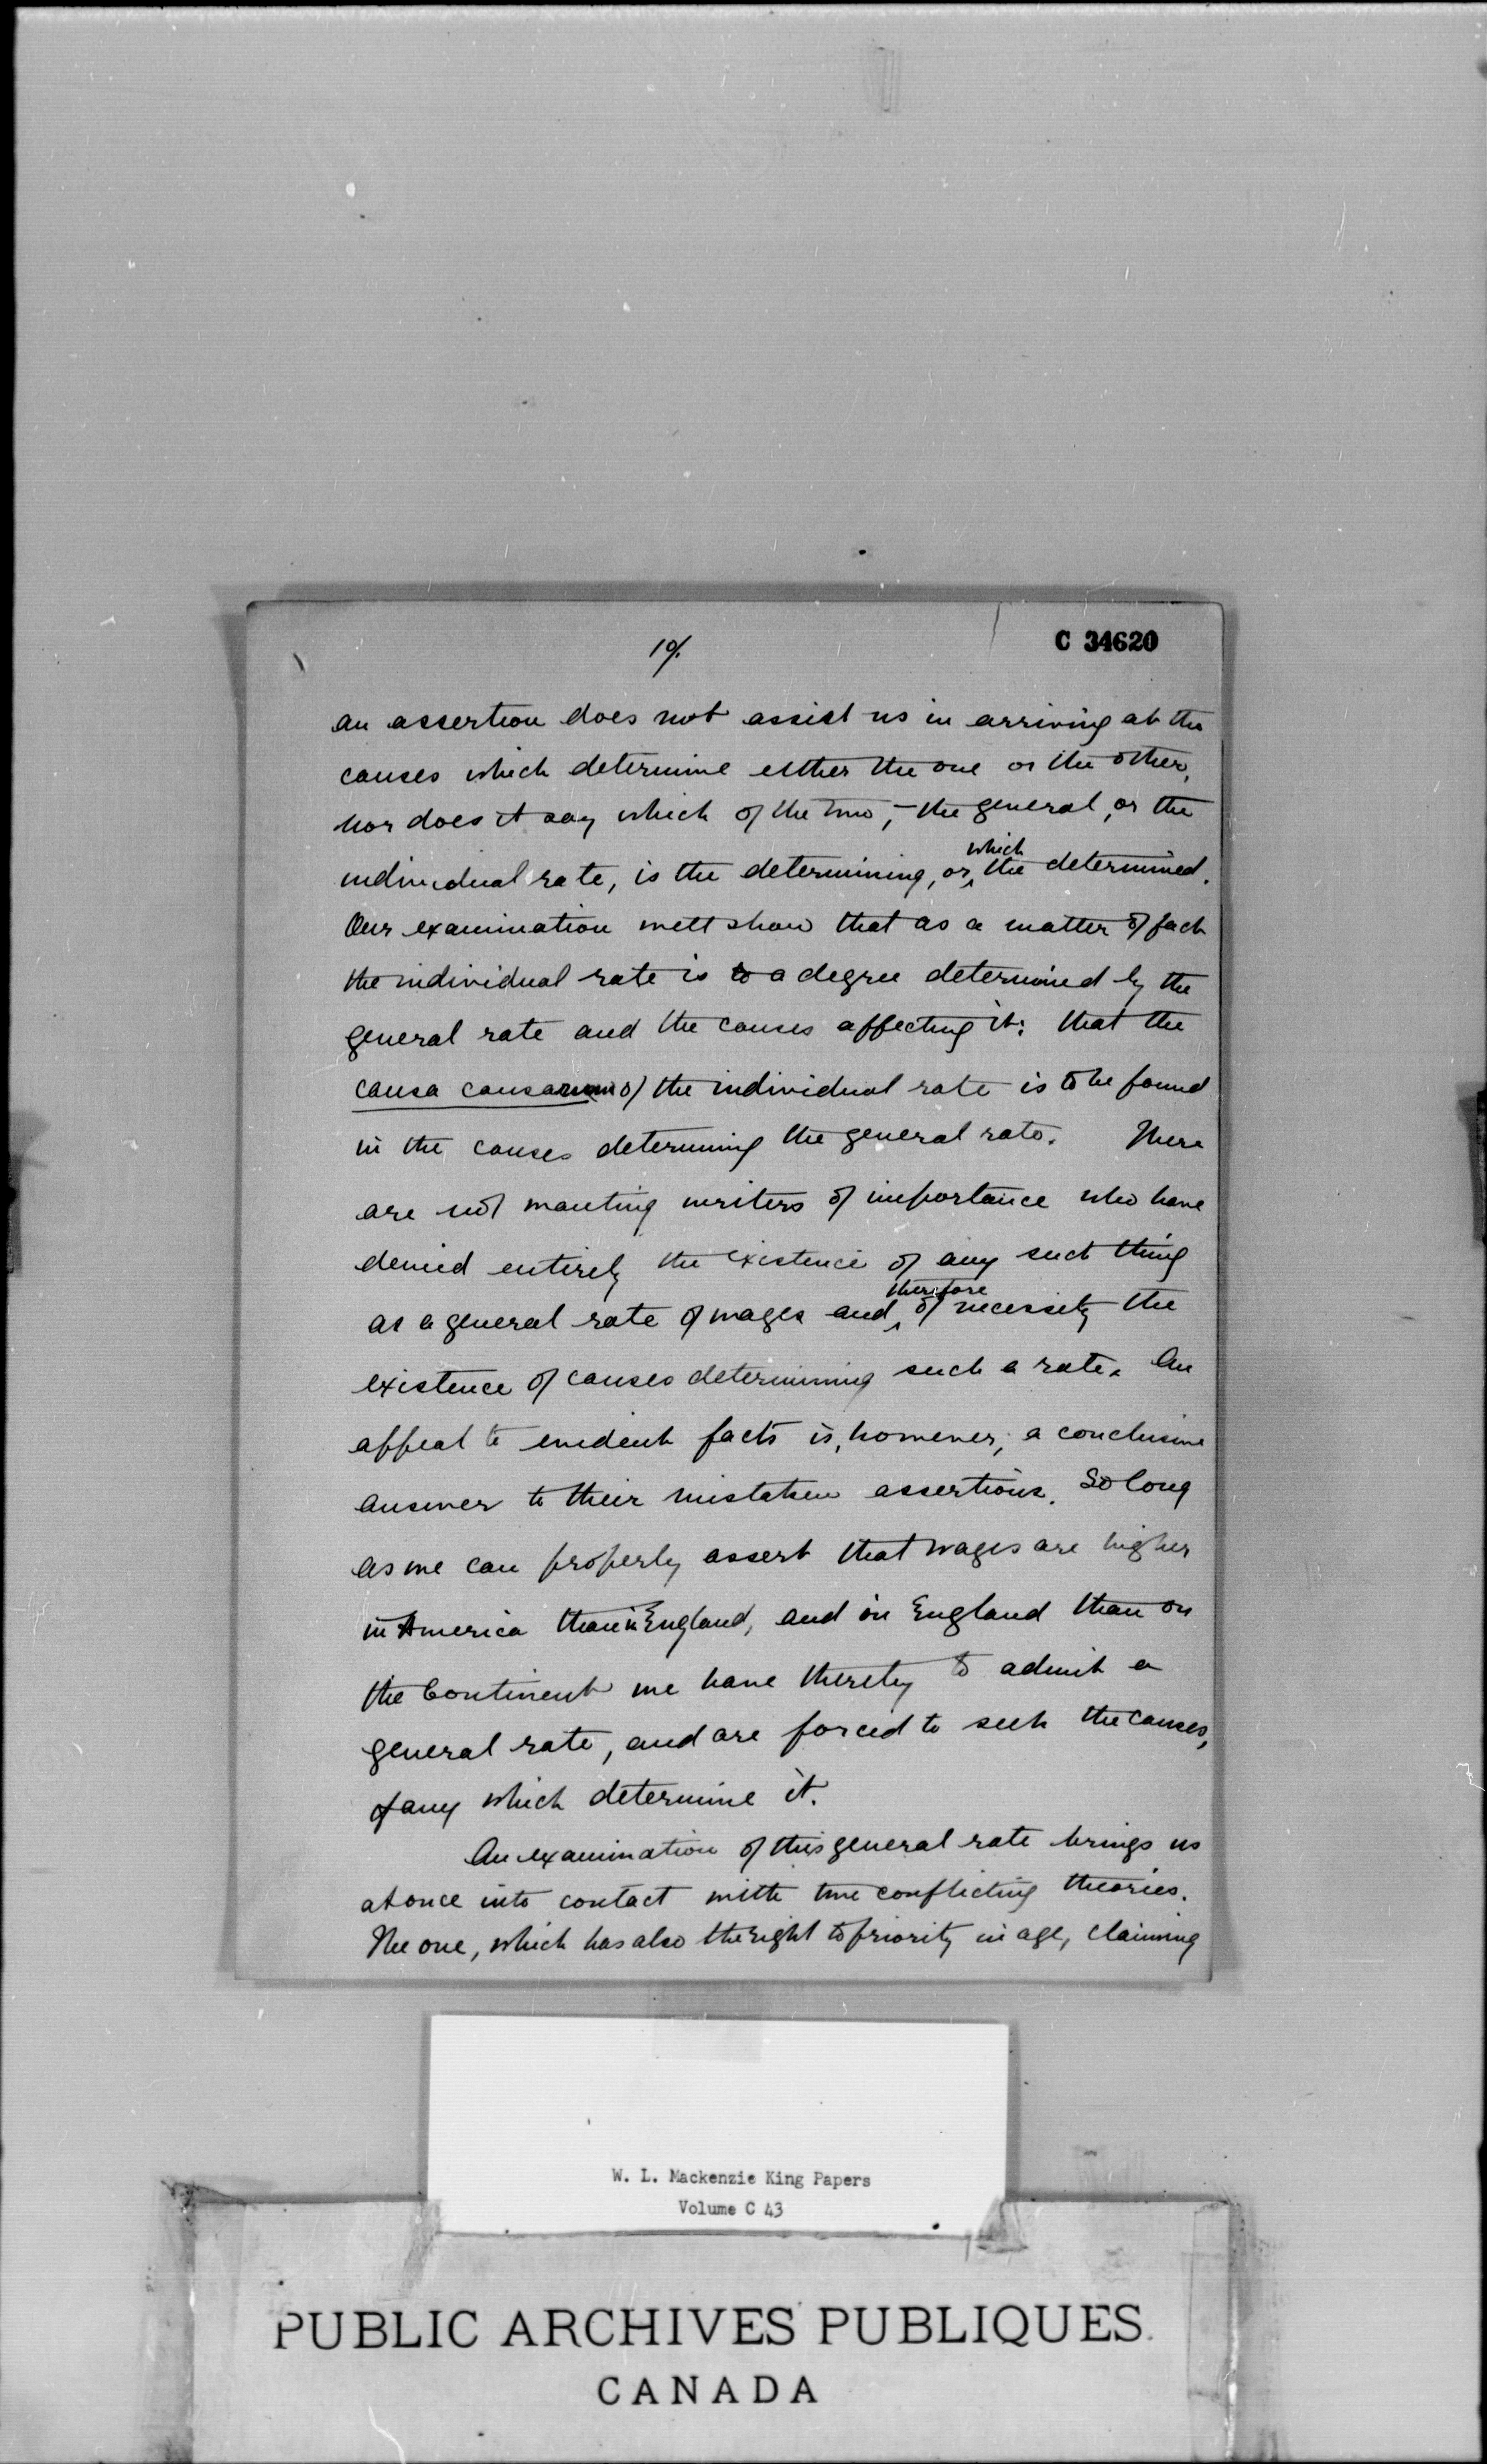 10/.
C 34620
an assertion does not assist us in arriving at the
causes which determine either the one or the other,
nor does it say which of the two, – the general, or the
which
individual rate, is the determining, or the determined.
Our examination will show that as a matter of fact
the individual rate is to a degree determined by the
general rate and the causes affecting it; that the
causa causarum of the individual rate is to be found
in the causes determining the general rate. There
are not wanting writers of importance who have
denied entirely the existence of any such thing
therefore
as a general rate of wages and of necessity the
existence of causes determining such a rate. An
appeal to evident facts is, however, a conclusive
answer to their mistaken assertions. So long
as we can properly assert that wages are higher
in America than in England, and in England than on
the Continent we have thereby to admit a
general rate, and are forced to seek the causes,
if any which determine it.
An examination of this general rate brings us
at once into contact with two conflicting theories.
The one, which has also the right to priority in age, claiming
W. L. Mackenzie King Papers
Volume C 43
PUBLIC ARCHIVES PUBLIQUES
CANADA